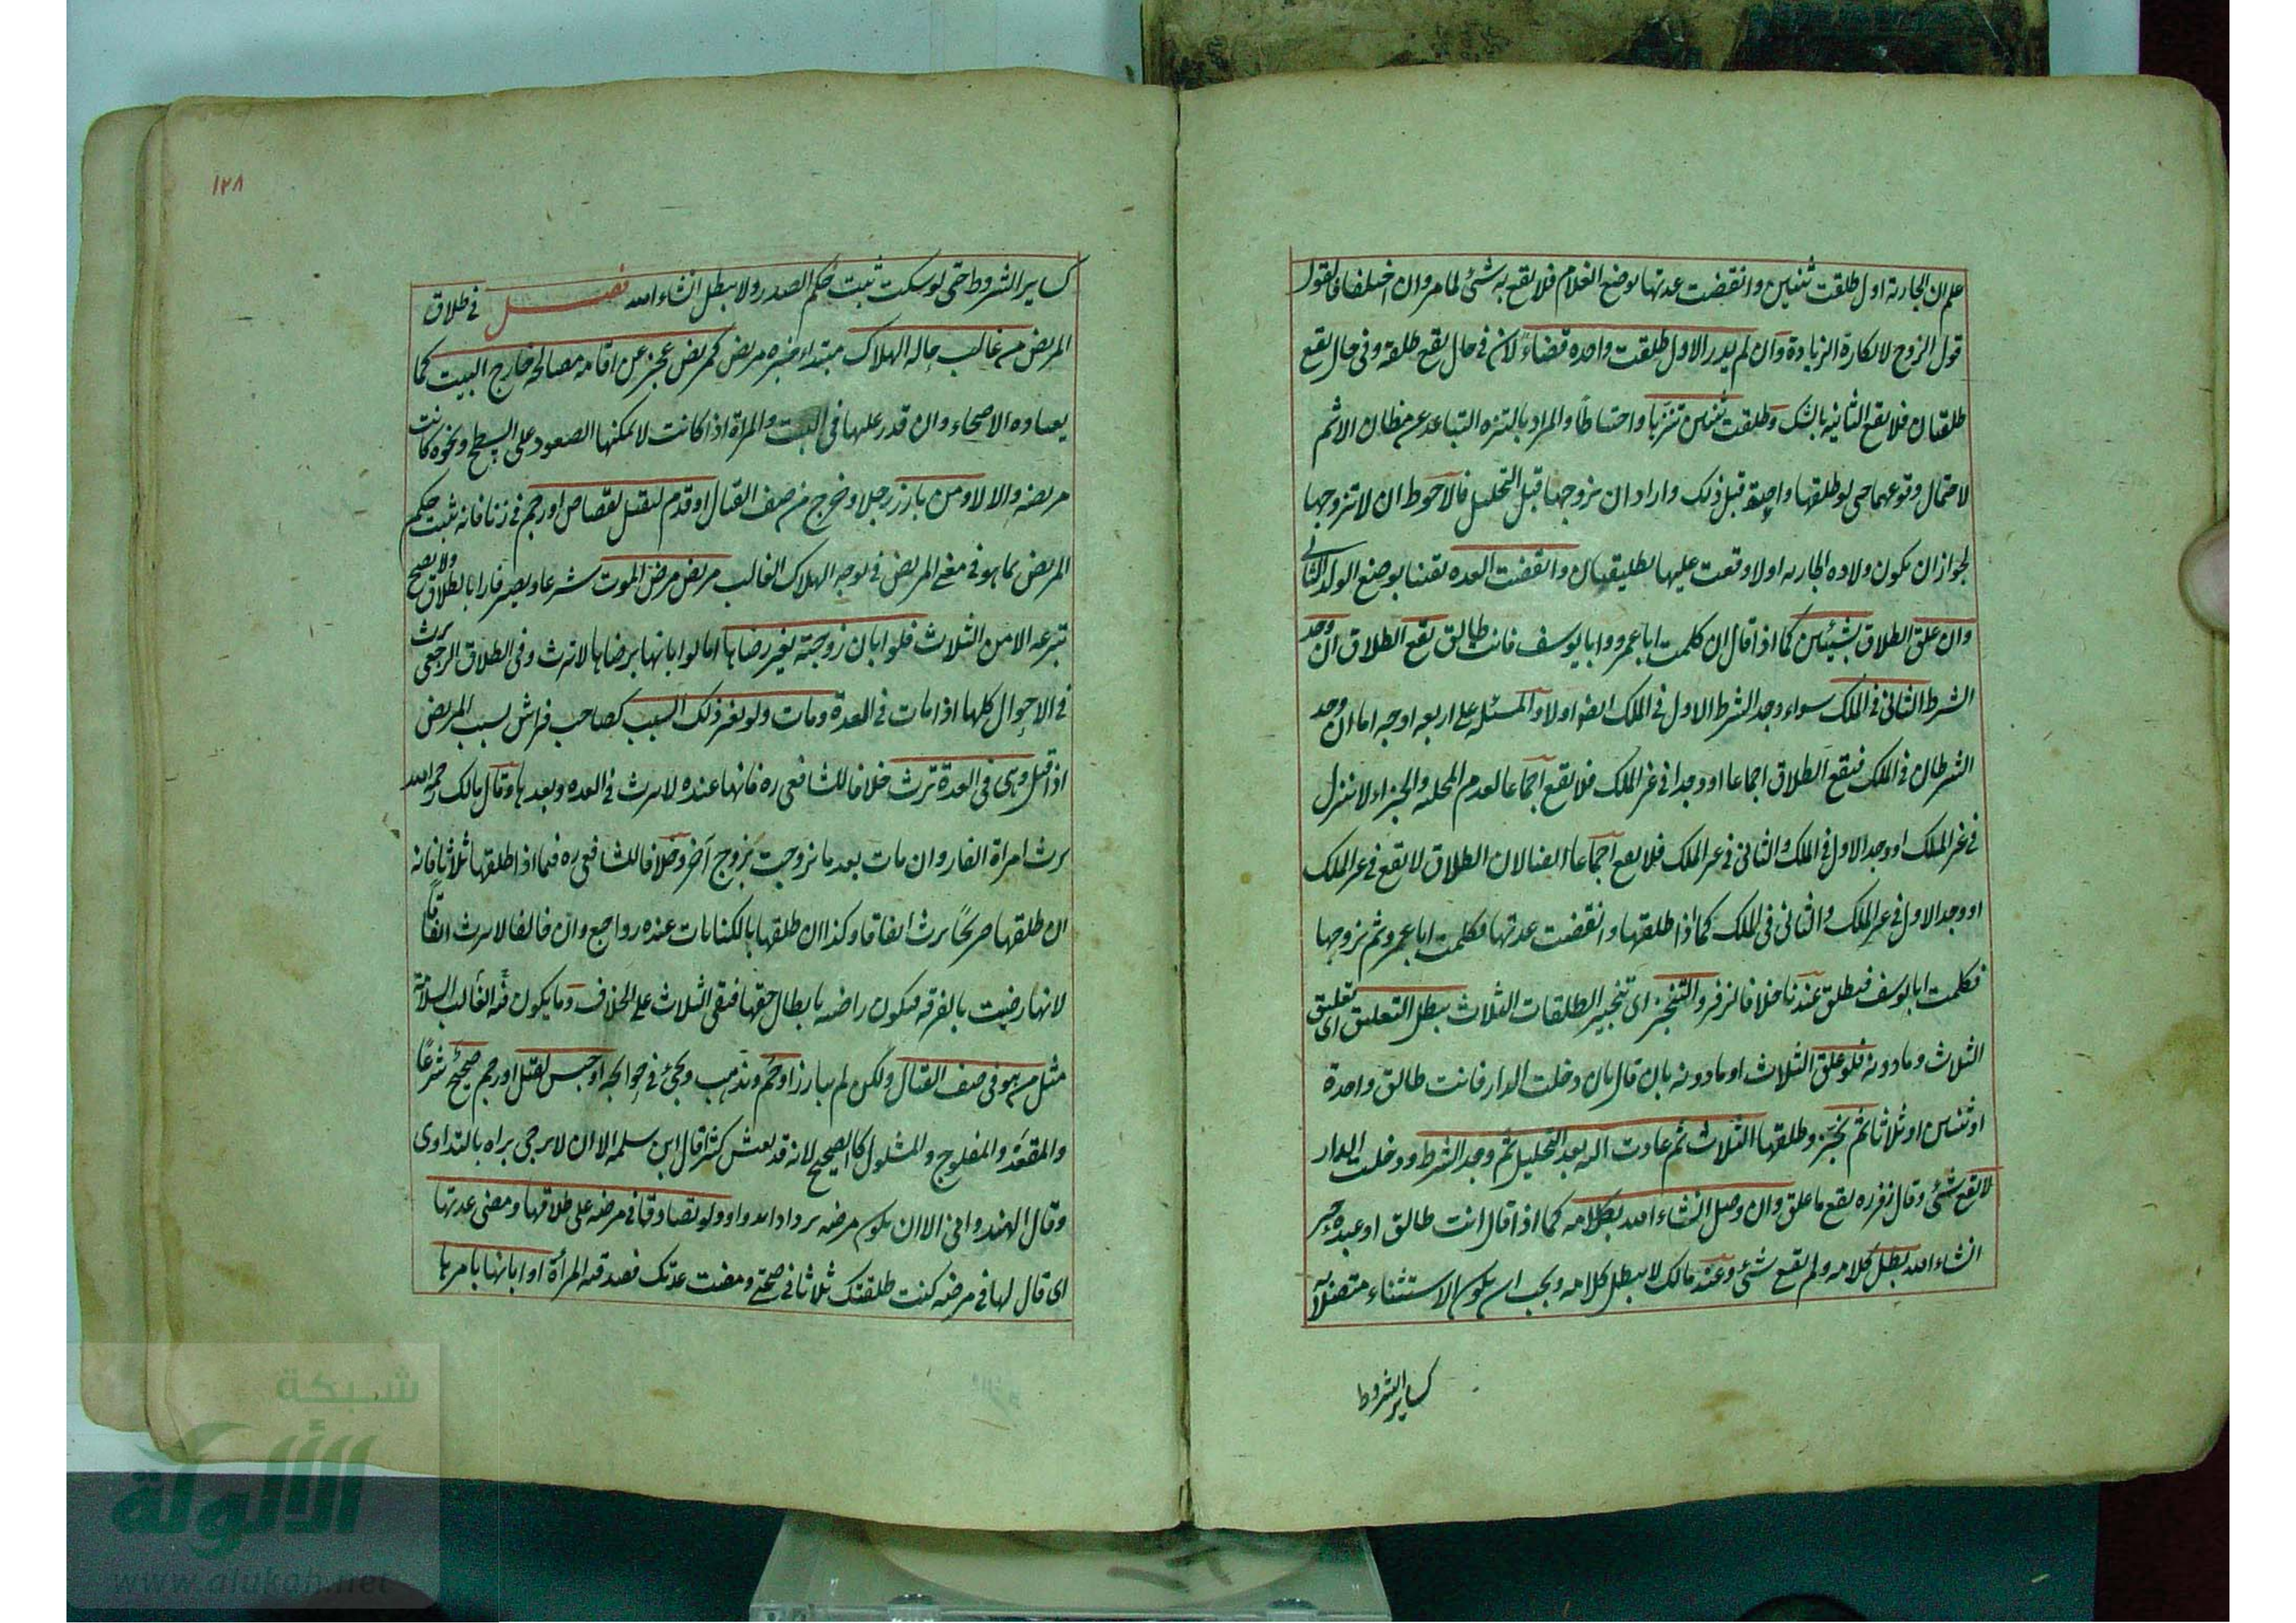 علم ان الجارية اول طلقت ثنتين وانقضت عدتها بوضع الغلام فلا يقع به شئ لما مر وان اختلفا فالقول
قول الزوج لانكاره الزيادة وان لم يدر الاول طلقت واحده قضاء لان في حال يقع طلقة وفي حال يقع
طلقتان فلا يقع الثانيه بالشك وطلقت ثنتين تنزها واحتياطا والمراد بالتنزه التباعد عن مظان الاثم
لاحتمال وقوعهما حتى لو طلقها واحدة قبل ذلك واراد ان يزوجها قبل التحليل فالاحوط ان لا تزوجها
لجواز ان يكون ولاده الجاريه اولا وقعت عليها تطليقتان وانقضت العده يقينا بوضع الولد الثاني
وان علق الطلاق بشيئين كما اذا قال ان كلمت ابا عمرو وابا يوسف فانت طالق يقع الطلاق ان وجد
الشرط الثاني في الملك سواء وجد الشرط الاول في الملك ايضا اولا والمسئلة على اربعه اوجه اما ان وجد
الشرطان في الملك فيقع الطلاق اجماعا او وجدا في غير الملك فلا يقع اجماعا لعدم المحلية والجزاء لا ينزل
في غير الملك او وجد الاول في الملك والثاني في غير الملك فلا يقع اجماعا ايضا لان الطلاق لا يقع في غير الملك
او وجد الاول في غير الملك والثاني في الملك كما اذا طلقها وانقضت عدتها فكلمت ابا عمرو ثم تزوجها
فكلمت ابا يوسف فيطلق عندنا خلافا لزفر والتنجيز اى تنجيز الطلقات الثلاث يبطل التعليق اى تعليق
الثلاث وما دونه فلو علق الثلاث او ما دونه بان قال ان دخلت الدار فانت طالق واحدة
او ثنتين او ثلاثا ثم نجز وطلقها الثلاث ثم عادت اليه بعد التحليل ثم وجد الشرط ودخلت الدار
لا يقع شئ وقال زفر ره يقع ما علق وان وصل انشاء الله بكلامه كما اذا قال انت طالق او عبده حر
انشاء الله بطل كلامه ولم يقع شئ وعند مالك لا يبطل كلامه ويجب ان يكون الاستثناء متصلا
كساير الشروط
١٢٨
كساير الشروط حتى لو سكت ثبت حكم الصدر ولا يبطل انشاء الله فصل في طلاق
المريض من غالب حاله الهلاك مبتداء خبره مريض كمريض عجز عن اقامه مصالحه خارج البيت كما
يعتاده الاصحاء وان قدر عليها في البيت والمراة اذا كانت لا يمكنها الصعود على السطح ونحوه كانت
مريضه والا لا ومن بارز رجلا او خرج من صف القتال او قدم ليقتل لقصاص او رجم في زنا فانه ثبت حكم
المريض بما هو في معنى المريض في توجه الهلاك الغالب مريض مرض الموت شرعا ويصير فارا بالطلاق ولا يصح
تبرعه الا من الثلاث فلو ابان زوجته بغير رضاها اما لو ابانها برضاها لا ترث وفي الطلاق الرجعي ترث
في الاحوال كلها اذا مات في العدة ومات ولو بغير ذلك السبب كصاحب فراش بسبب المرض
اذا قتل وهي في العدة ترث خلافا للشافعي ره فانها عنده لا ترث في العده وبعدها وقال مالك رحمه الله
ترث امراة الفار وان مات بعد ما تزوجت بزوج آخر وخلافا للشافعي ره فيما اذا طلقها ثلاثا فانه
ان طلقها صريحا ترث اتفاقا وكذا ان طلقها بالكنايات عنده رواجع وان خالفا لا ترث اتفاقا
لانها رضيت بالفرقه فيكون راضيه بابطال حقها فبقى الثلاث على الخلاف وما يكون فيه الغالب السلامة
مثل من هو في صف القتال ولكن لم يبارز او حم ويذهب ويجئ في حوائجه او حبس لقتل او رجم صحيح شرعا
والمقعد والمفلوج والمشلول كالصحيح لانه قد يعيش كثيرا قال ابن سلمه الا ان لا يرجى براه بالتداوى
وقال الهندواني الا ان يكون مرضه يزداد ابدا ولو تصادقا في مرضه على طلاقها ومضى عدتها
اى قال لها في مرضه كنت طلقتك ثلاثا في صحتي ومضت عدتك فصدقته المرأة او ابانها بامرها
شبكة
الألوكة
www.alukah.net